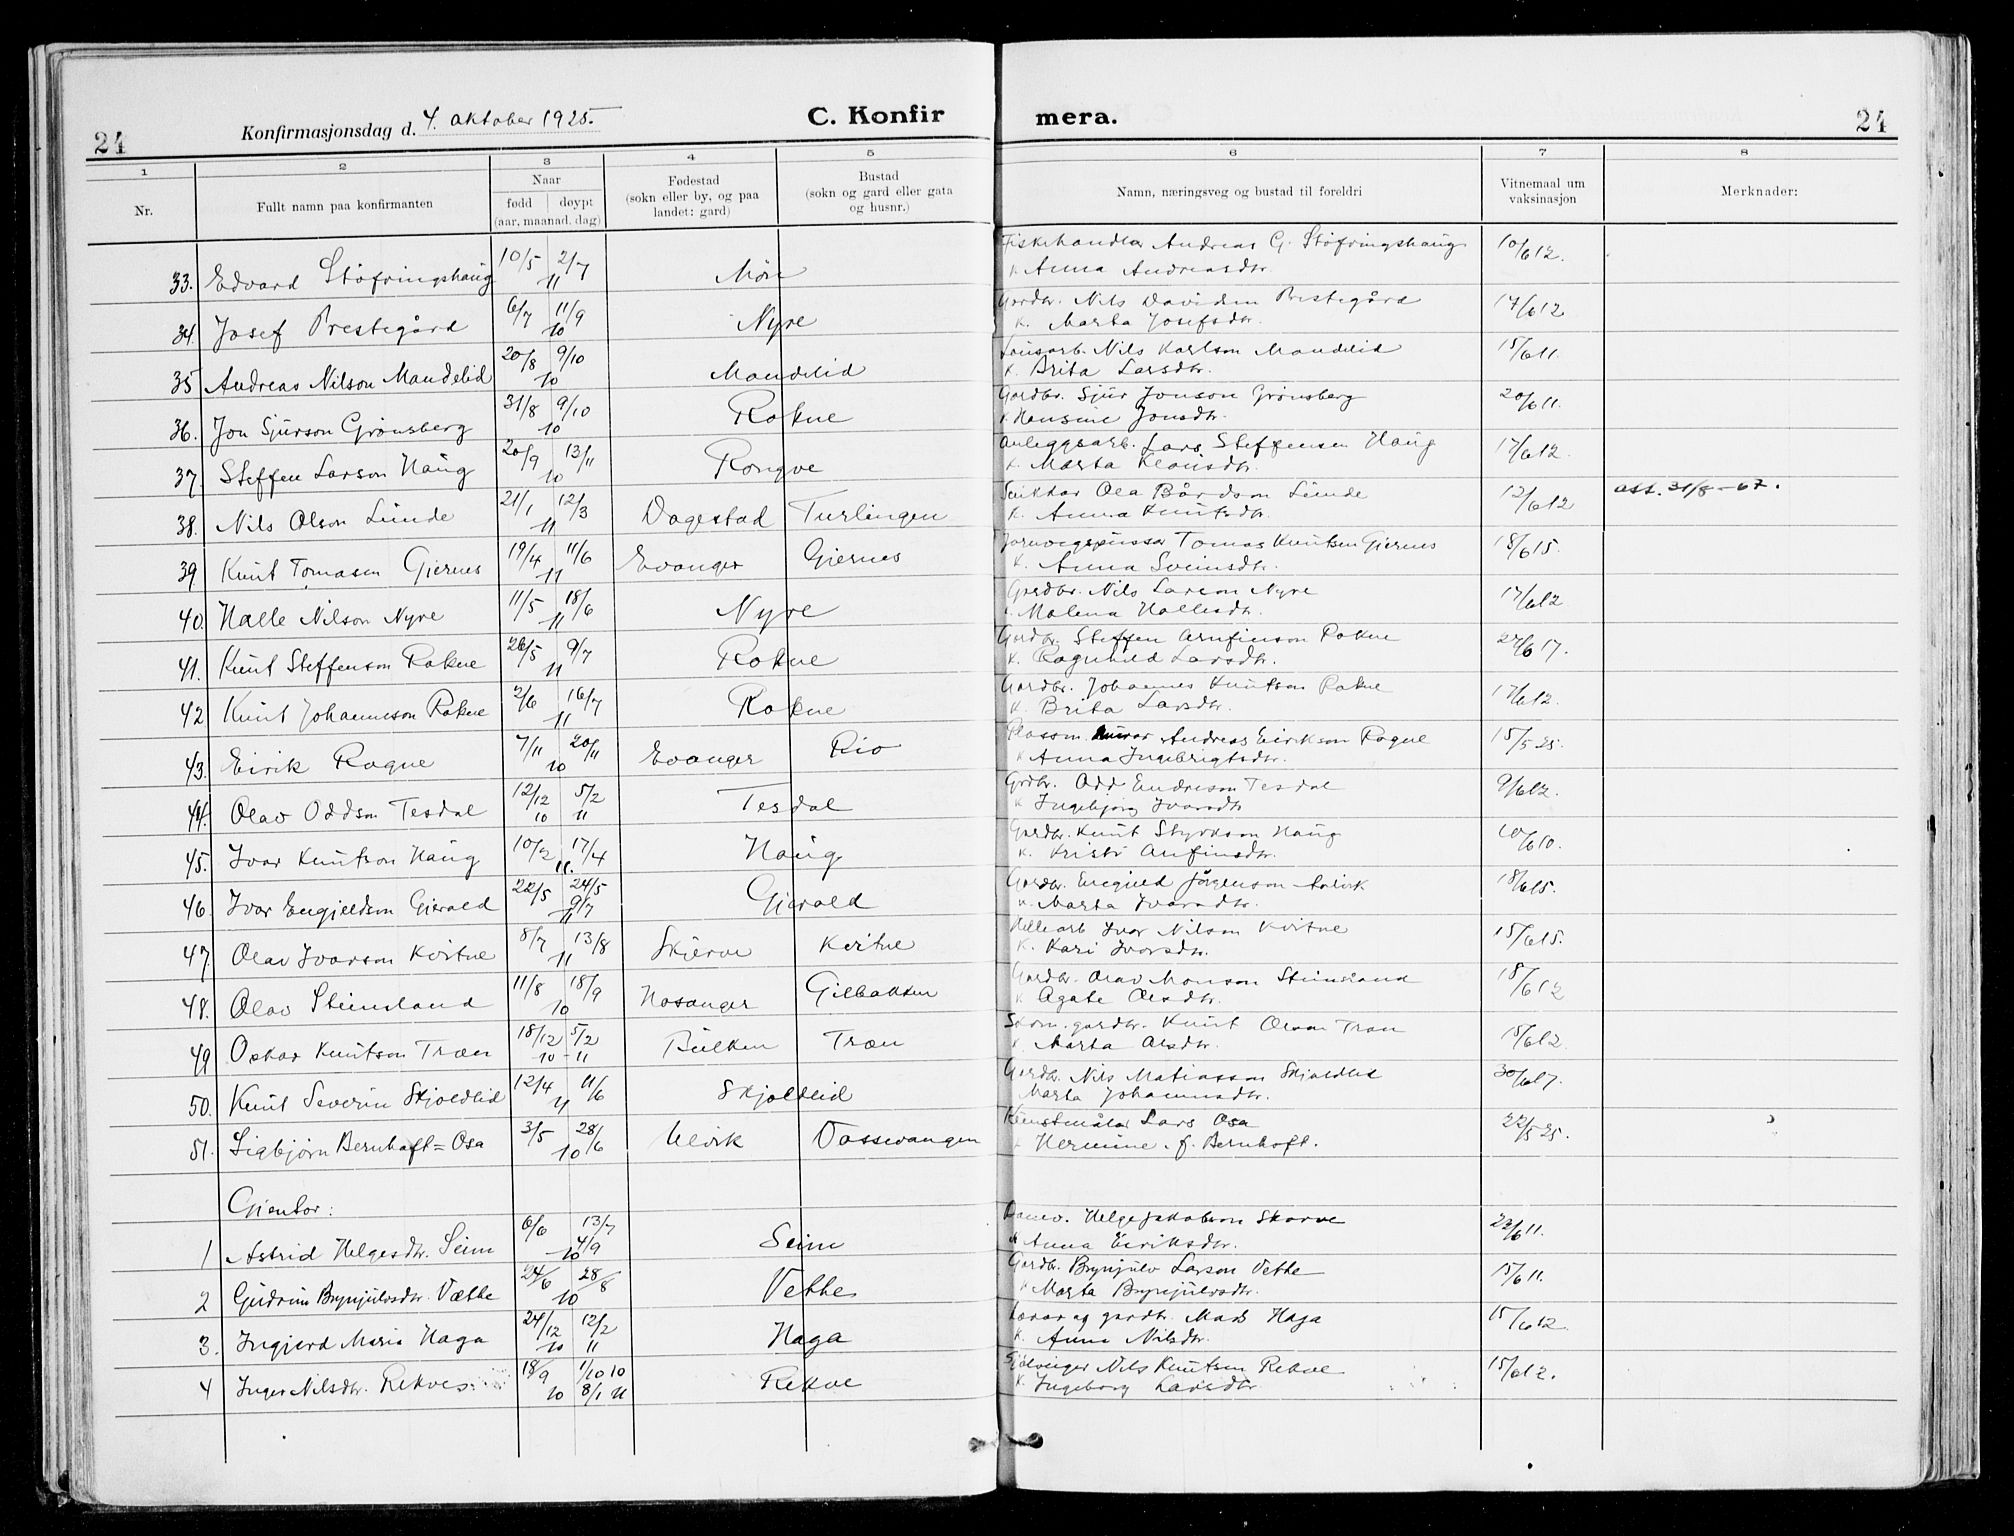 24
Konfirmasjonsdag d. 4. oktober 1925.
C. Konfir
mera.
24
1 2 3 4 5 6 7 8
Nr.
Fullt namn paa konfirmanten
Naar
fødd døypt
(aar, maanad, dag)
Fødestad
(sokn eller by, og paa
landet: gard)
Bustad
(sokn og gard eller gata
og husnr.)
Namn, næringsveg og bustad til foreldri
Vitnemaal um
vaksinasjon
Merknader:
33. Edvard Støfringshaug 10/5 2/7 Møn Fiskehandlar Andreas G. Støfringshaug 10/6 12.
11 k. Anna Andreasdtr.
34. Josef Prestegård 6/7 11/9 Nyre Gardbr. Nils Davidsen Prestegård 17/6 12
10 k. Marta Josefsdtr.
35 Andreas Nilson Mandelid 20/8 9/10 Mandelid Nils Karlson Mandelid 15/6 11.
10 k. Brita Larsdtr.
36. Jon Sjurson Grønsberg 31/8 9/10 Rokne Gardbr. Sjur Jonson Grønsberg 20/6 11.
10 k. Hansine Jonsdtr.
37. Steffen Larson Haug 20/9 13/11 Rongve Anleggsarb. Lars Steffensen Haug 17/6 12.
10 k. Marta Klausdtr.
38. Nils Olson Lunde 21/1 12/3 Dagestad Turlingen Ola Bårdson Lunde 12/6 12 att. 31/8-67.
11 k. Anna Knutsdtr.
39. Knut Tomasen Gjernes 19/4 11/6 Evanger Gjernes Jarnvegspussar Tomas Knutsen Gjernes 18/6 15.
11 k. Anna Sveinsdtr.
40. Halle Nilson Nyre 11/5 18/6 Nyre Gardbr. Nils Larson Nyre 17/6 12
11 k. Malena Hallesdtr.
41. Knut Steffenson Rokne 26/5 9/7 Rokne Gardbr. Steffen Arnfinson Rokne 27/6 17.
11 k. Ragnhild Larsdtr.
42 Knut Johanneson Rokne 2/6 16/7 Rokne Gardbr. Johannes Knutson Rokne 17/6 12.
11 k. Brita Larsdtr.
43. Eirik Rogne 7/11 20/11 Evanger Rio Plassm. Andreas Eirikson Rogne 15/5 25.
10 k Anna Ingebrigtsdtr.
44. Olav Oddson Tesdal 12/12 5/2 Tesdal Grdbr. Odd Endreson Tesdal 9/6 12.
10 11 k Ingebjørg Ivarsdtr
45. Ivar Knutson Haug 10/2 17/4 Haug Gardbr. Knut Styrkson Haug 10/6 10.
11. k. Kristi Anfinsdtr.
46. Ivar Engjeldson Gjerald 22/5 24/5 Gjerald Gardbr. 18/6 15.
9/7
11 k. Marta Ivarsdtr.
47 Olav Ivarson Kvitne 8/7 13/8 Skjerve Kvitne Hellearb Ivar Nilson Kvitne 15/6 15.
11 k. Kari Ivarsdtr.
48. Olav Steinsland 11/8 18/9 Hosanger Gilbakken Gardbr. Olav Monson Steinsland 18/6 12
10 k Agate Olsdtr.
49 Oskar Knutson Træn 18/12 5/2 Bulken Træn Skom. gardbr. Knut Olson Træn 15/6 12.
10 - 11 k. Marta Olsdtr.
50. Knut Severin Skjoldlid 12/4 11/6 Skjoldlid Gardbr. Nils Matiasson Skjoldlid 30/6 17.
11 Marta Johannesdtr.
51. Sigbjørn Bernhoft=Osa 3/5 28/6 Ulvik Vossevangen Kunstmålar Lars Osa 22/5 25.
10 k Hermine f. Bernhoft.
Gjentor:
1 Astrid Helgesdtr. Seim 6/6 13/7 Seim Helge Jakobson Skorve 23/6 11.
4/9
10 k Anna Eiriksdtr.
2 Gudrun Brynjulvsdtr. Vætte 24/6 28/8 Vethe Gardbr. Brynjulv Larson Vethe 15/6 11.
10 k Marta Brynjulvsdtr.
3. Ingjerd Maria Haga 24/12 12/2 Haga Lærar og gardbr. Mads Haga 15/6 12
10 11 k. Anna Nilsdtr.
4 Inger Nilsdtr. Rekve 18/9 1/10 10 Rekve Nils Knutsen Rekve 15/6 12.
10 8/1 11 k. Ingeborg Larsdtr.